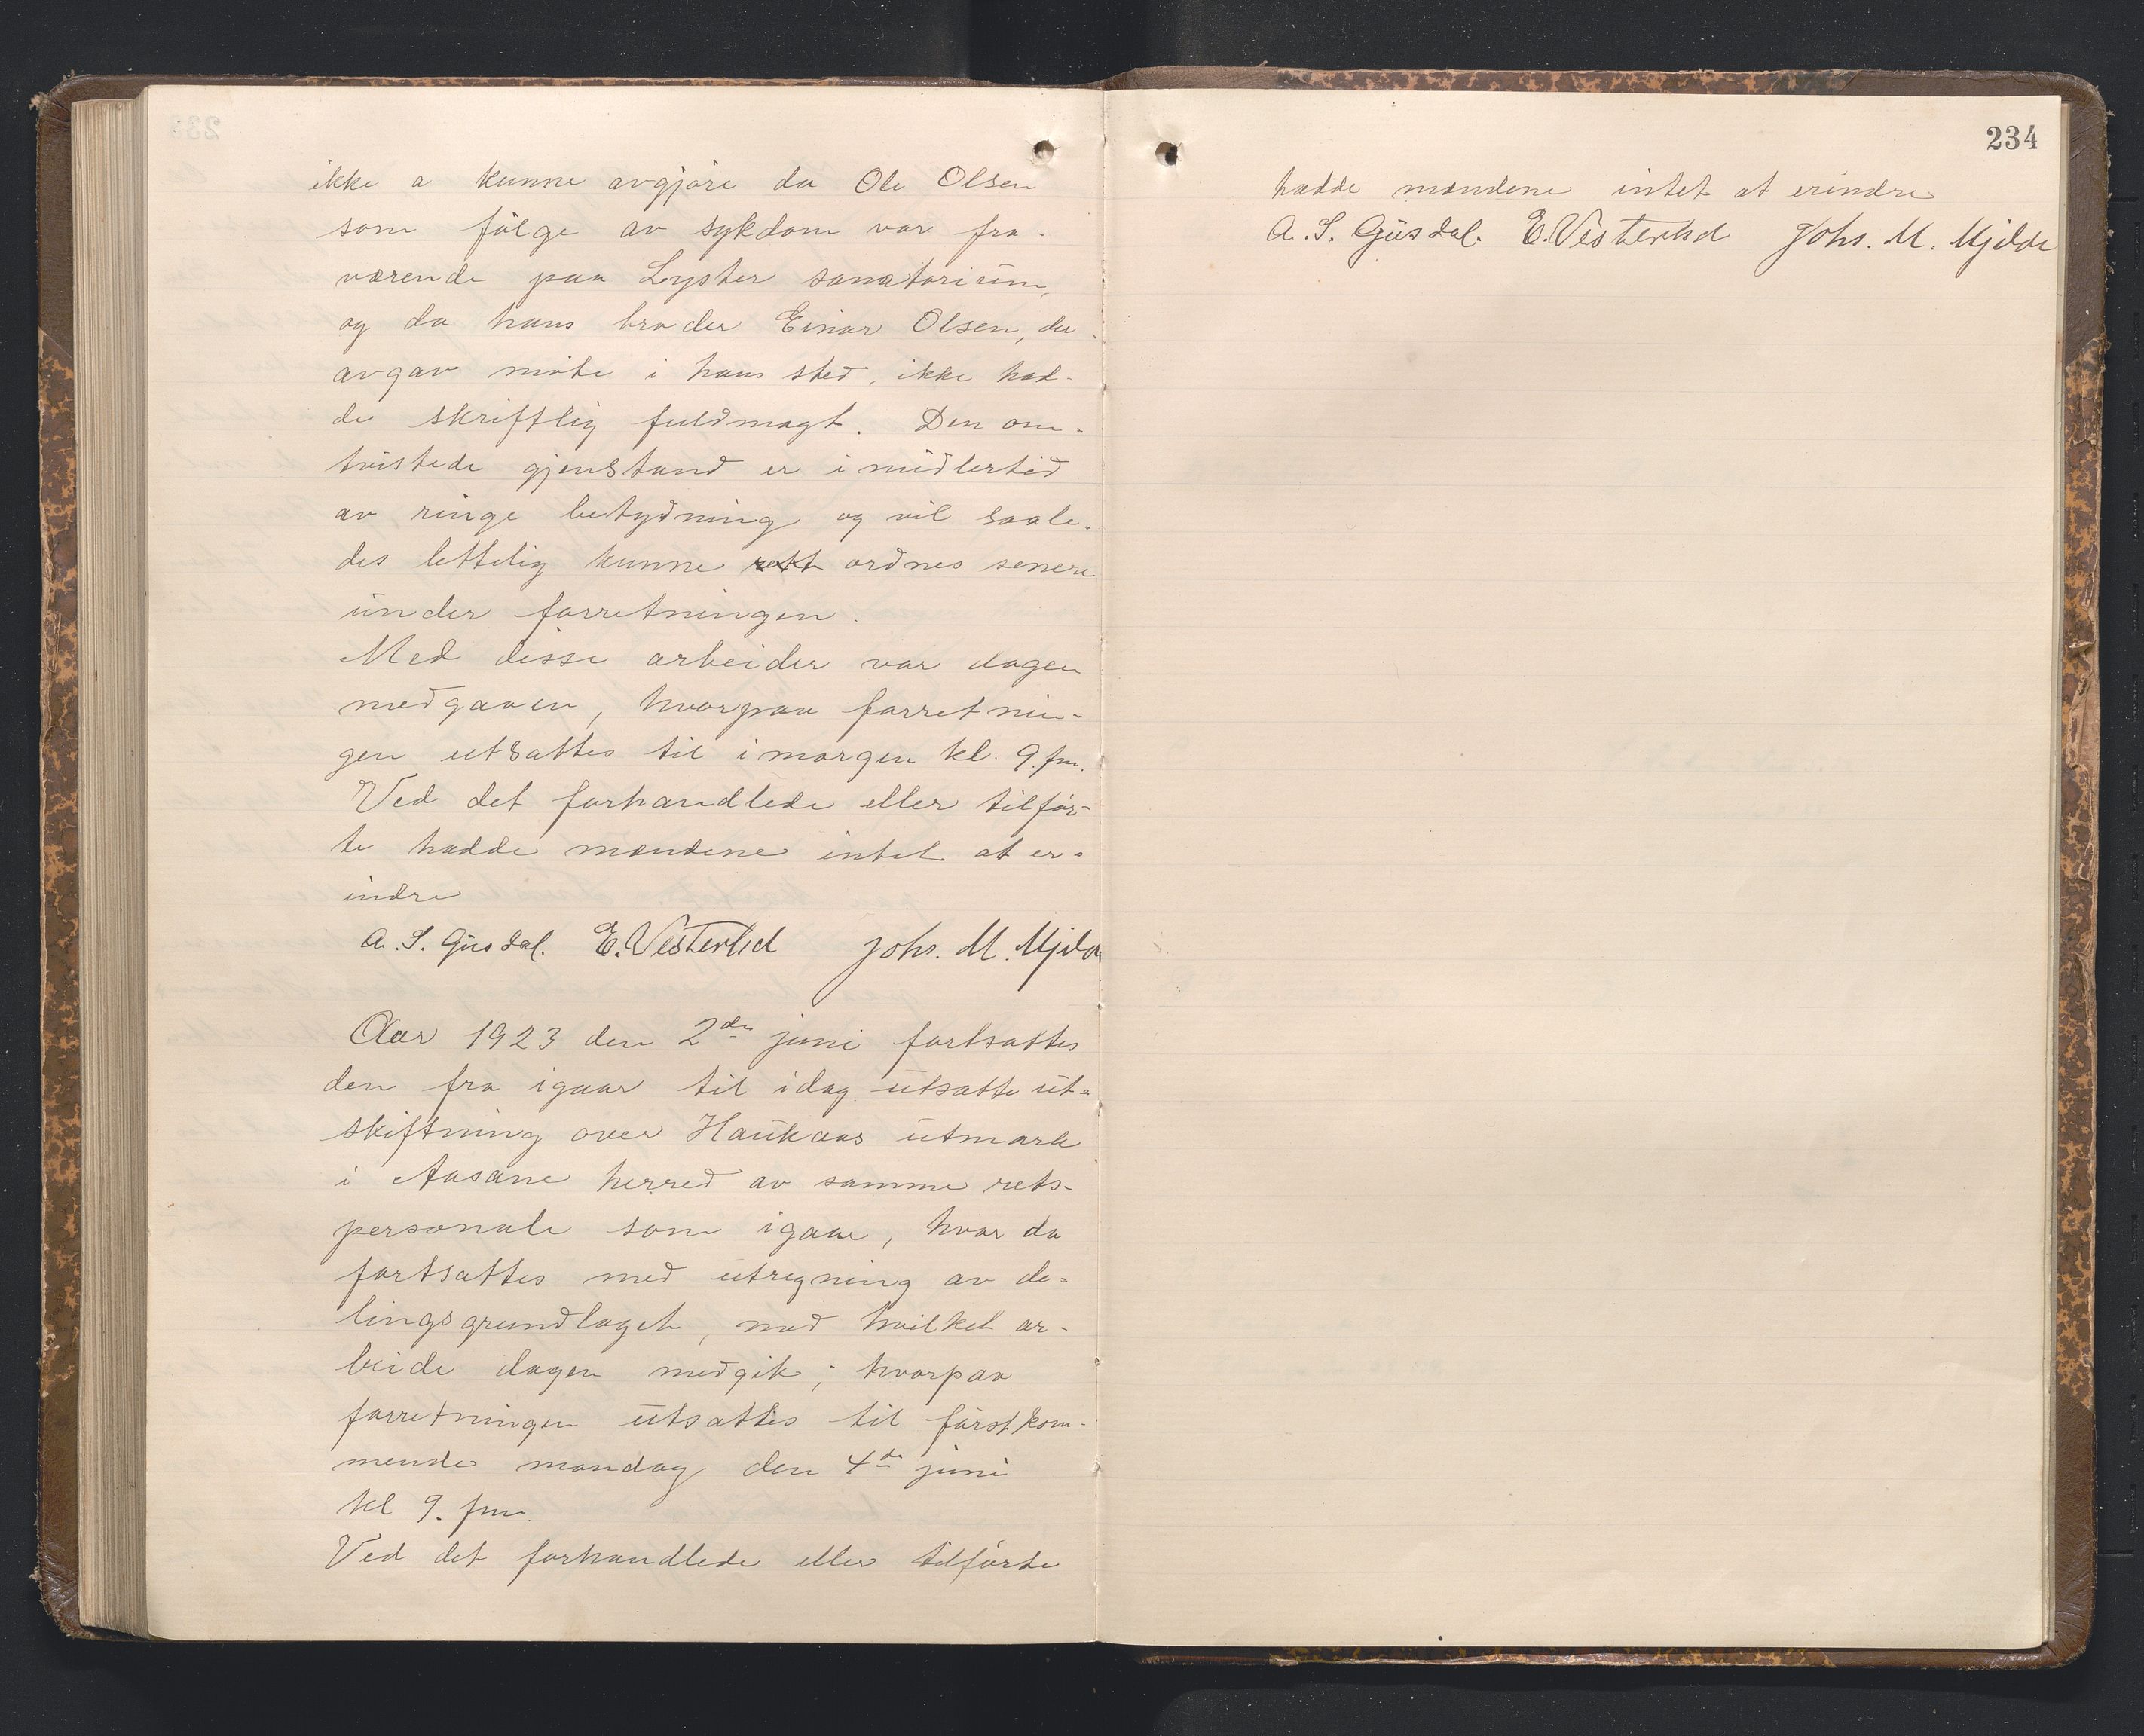 ikke a kunne avgjøre da Ole Olsen
som følge av sykdom var fra-
værende paa Lyster sanatorium,
og da hans broder Einar Olsen, der
avgav møte i hans sted, ikke had-
de skriftlig fuldmagt. Den om-
tvistede gjenstand er imidlertid
av ringe betydning og vil saale-
des lettelig kunne rett ordnes senere
under forretningen.
Med disse arbeider var dagen
medgaaen, hvorpaa forretnin-
gen utsattes til imorgen kl. 9. fm.
Ved det forhandlede eller tilfør-
te hadde mændene intet at er-
indre
A. S. Gusdal. E. Vesterlid Johs. M. Mjelde
Aar 1923 den 2den juni fortsattes
den fra igaar til idag utsatte ut-
skiftning over Haukaas utmark
i Aasane herred av samme rets-
personale som igaar, hvor da
fortsattes med utregning av de-
lingsgrundlaget, med hvilket ar-
beide dagen medgik; hvorpaa
forretningen utsattes til først kom-
mende mandag den 4de juni
kl 9. fm.
Ved det forhandlede eller tilførte
234
hadde mændene intet at erindre
A. S. Gusdal. E. Vesterlid Johs. M. Mjelde